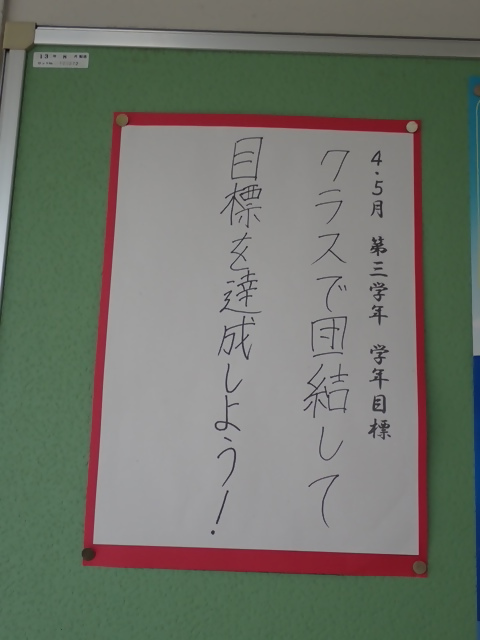 4・5月 第三学年 学年目標
クラスで団結して
目標を達成しよう！